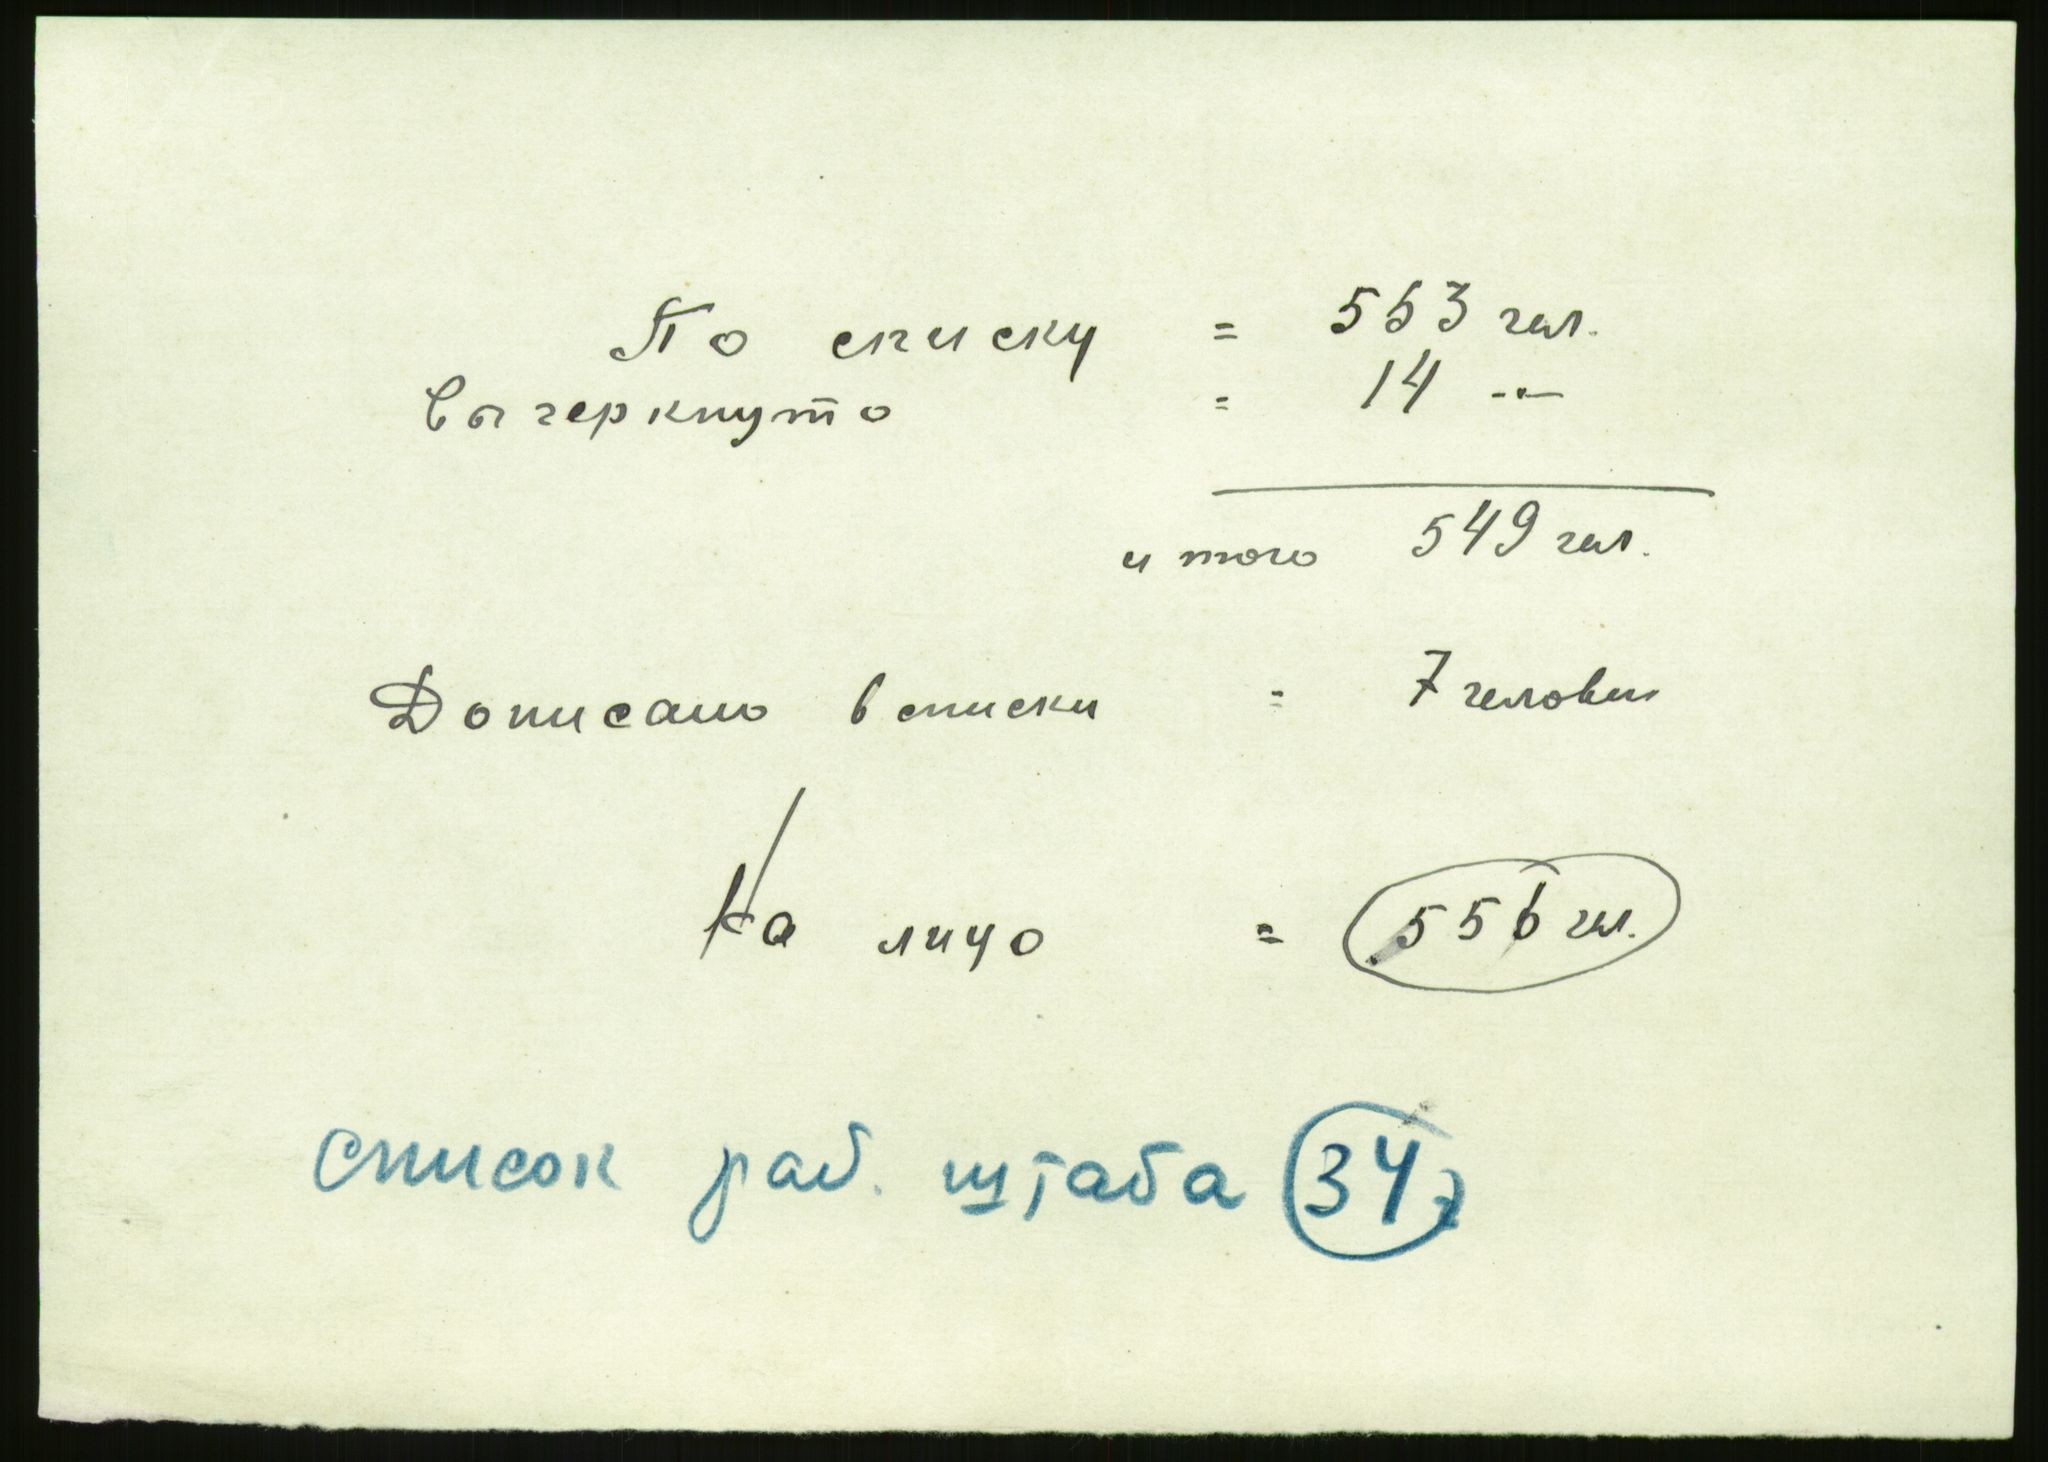 По списку = 563 чел.
Вычеркнуто = 14 -"-
итого 549 чел.
Дописано в списки = 7 человек
На лицо = 556 чел.
список раб. штаба 34